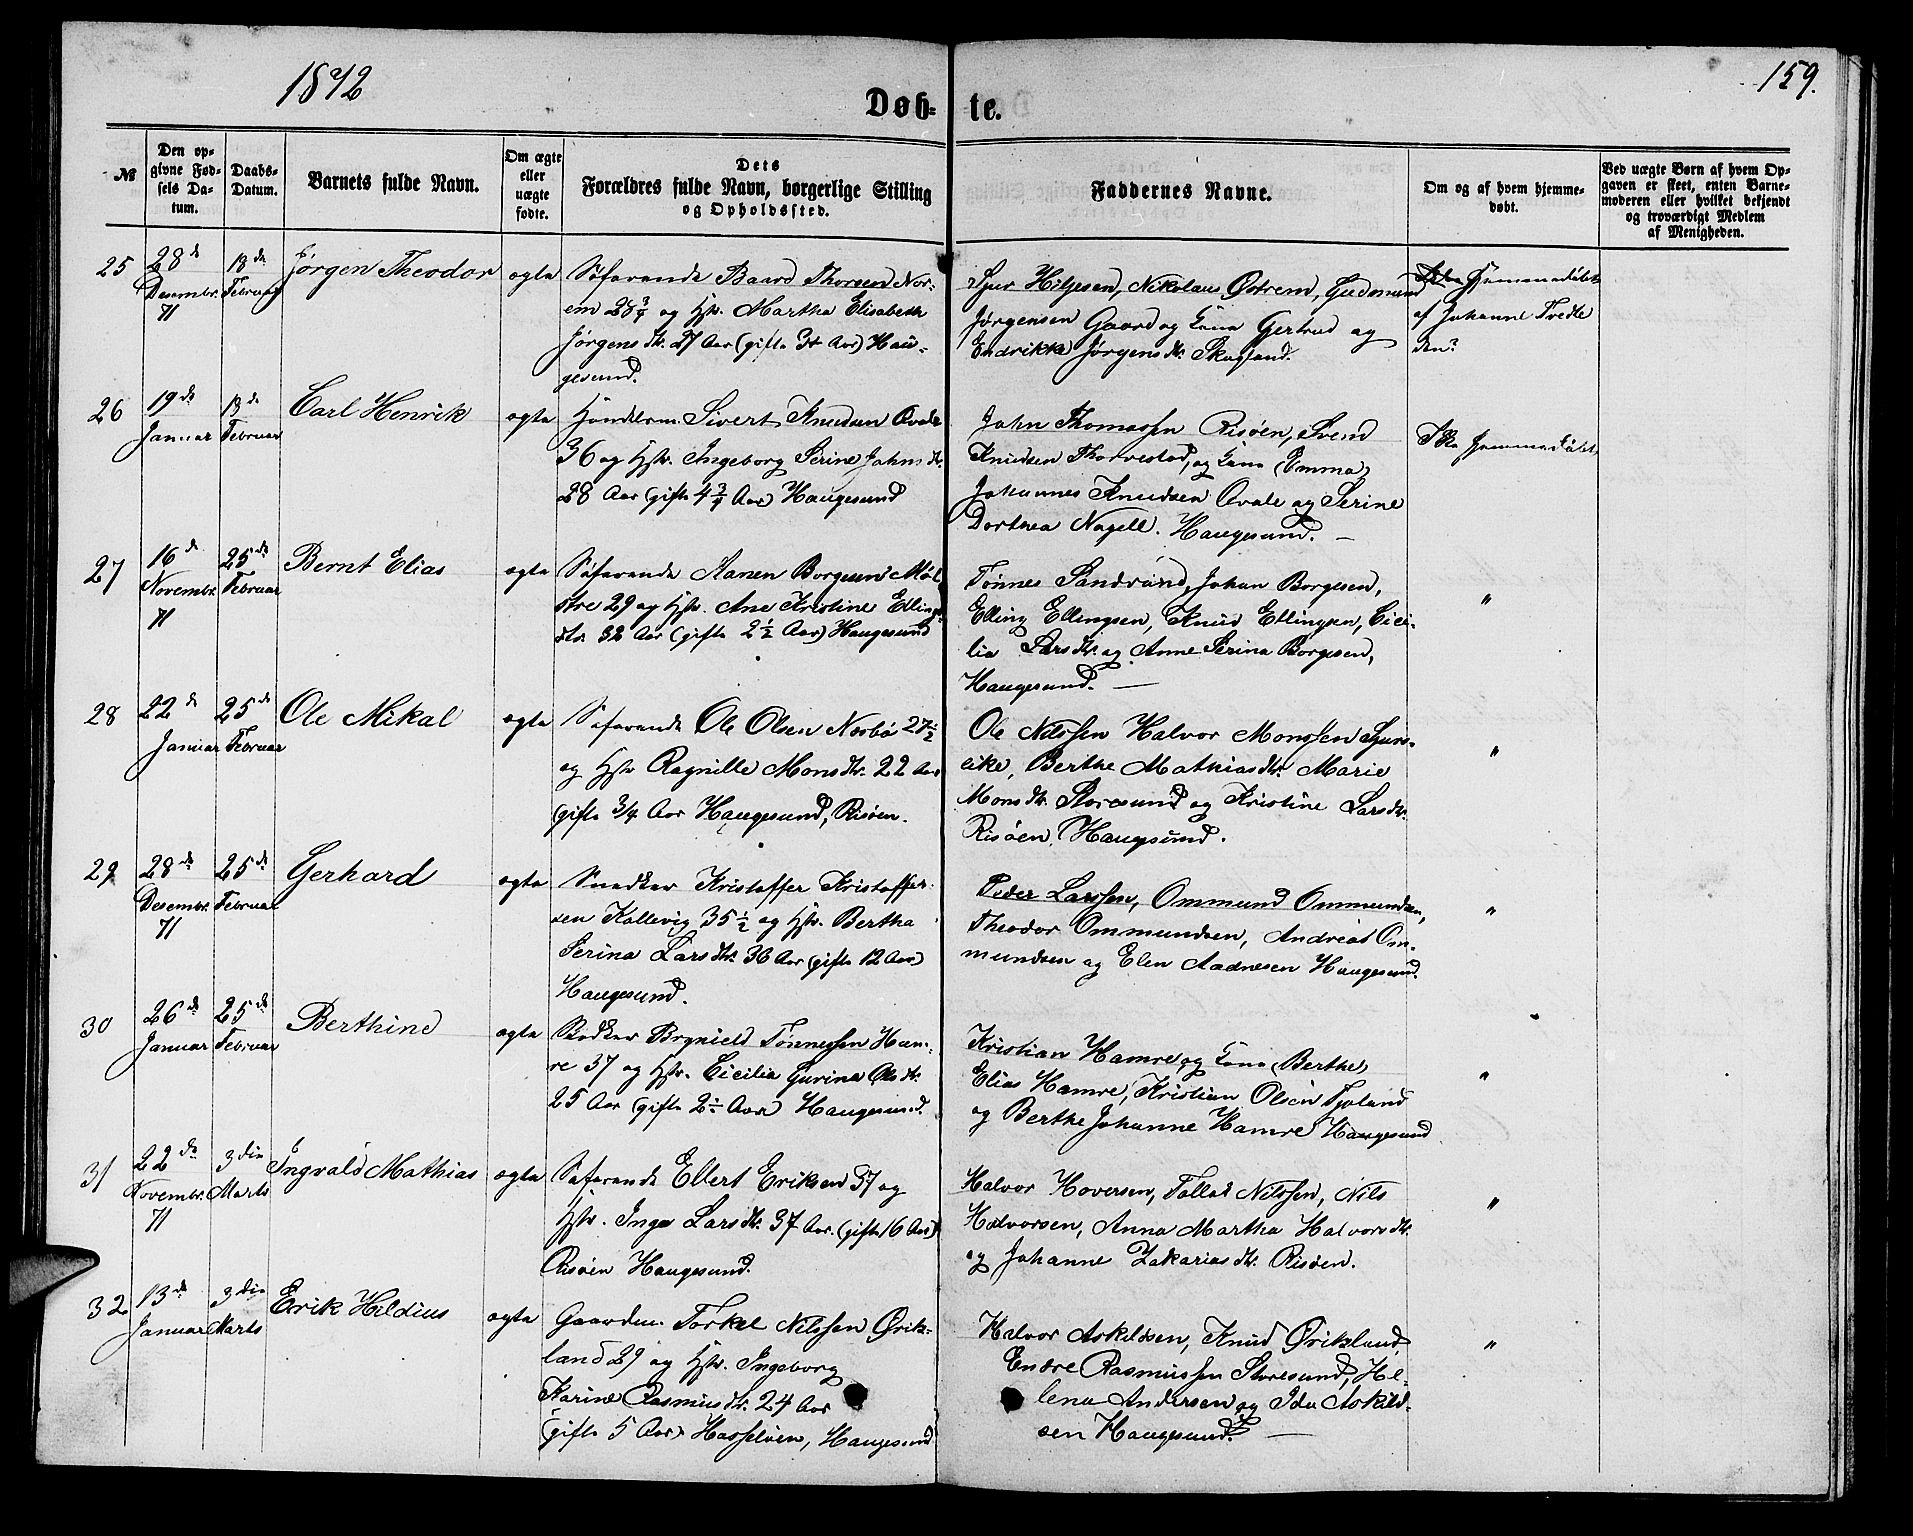 1872
159.
Døb- te.
№
Den op-
givne Fød-
sels Da-
tum.
Daabs-
Datum.
Barnets fulde Navn.
Om ægte
eller
uægte
fødte.
Dets
Forældres fulde Navn, borgerlige Stilling
og Opholdssted.
Faddernes Navne.
Om og af hvem hjemme-
døbt.
Ved uægte Børn af hvem Op-
gaven er skeet, enten Barne-
moderen eller hvilket bekjendt
og troværdigt Medlem
af Menigheden.
25
28de
Desembr.
71
18de
Februar
Jørgen Theodor
ægte
Søfarende Baard Thorsen Nor-
em 28 3/4 og Hstr. Martha Elisabeth
Jørgensdtr. 27 Aar (gifte 3 Aar) Hau-
gesund.
Sjur Hiljesen, Nikolaus Østrem, Gudmund
Jørgensen Gaard og Kona Gertrud og
Endrikka Jørgensdtr. Skogland.
Hjemmedøbt
af Johanne Tvedte
den?
26
19de
Januar
18de
Februar
Carl Henrik
ægte
Handelsm. Sivert Knudsen Qvale
36 og Hstr. Ingeborg Serine Johnsdtr.
28 Aar (gifte 4 3/4 Aar) Haugesund
John Thomassen Risøen, Svend
Knudsen Thorvestad, og Kona Emma,
Johannes Knudsen Qvale og Serine
Dorthea Nagell. Haugesund. —
Ikke hjemmedøbt
27
16de
Novembr.
71
25de
Februar
Bernt Elias
ægte
Søfarende Aanen Borgesen Møl-
stre 29 og Hstr. Ane Kristine Ellings-
dtr. 32 Aar (gifte 2 1/2 Aar) Haugesund
Tønnes Sandvind, Johan Borgesen,
Elling Ellingsen, Knud Ellingsen, Cici-
lia Larsdtr. og Anne Serina Borgesen,
Haugesund. —
"
28
22de
Januar
25de
Februar
Ole Mikal
ægte
Søfarende Ole Olsen Nesbø 27 1/2
og Hstr Ragnille Monsdtr. 22 Aar
(gifte 3/4 Aar Haugesund, Risøen.
Ole Nilssen Halvor Monssen Sjurs-
eike, Berthe Mathiasdtr. Marie
Monsdtr. Storesund og Kristine Larsdtr.
Risøen, Haugesund.
"
29
28de
Desembr.
71
25de
Februar
Gerhard
ægte
Snedker Kristoffer Kristoffer-
sen Kallevig 35 1/2 og Hstr. Bertha
Serina Larsdtr. 36 Aar (gifte 12 Aar)
Haugesund.
Peder Larssen, Ommund Ommundsen,
Theodor Ommundsen, Andreas Om-
mundsen og Elen Aadnesen Haugesund.
"
30
26de
Januar
25de
Februar
Berthine
ægte
Bødker Brynield Tønnessen Ham-
re 37 og Hstr. Cicilia Gurina Olsdtr.
25 Aar (gifte 2 1/2 Aar) Haugesund.
Kristian Hamre og Kona Berthe,
Elias Hamre, Kristian Olsen Fjøland
og Berthe Johanne Hamre Haugesund
"
31
22de
Novembr.
71
3die
Marts
Ingvald Mathias
ægte
Søfarende Ellert Eriksen 37 og
Hstr. Inga Larsdtr. 37 Aar. (gifte 16 Aar)
Risøen Haugesund.
Halvor Hoversen, Tollak Nilssen, Nils
Halvorsen, Anna Martha Halvorsdtr.
og Johanne Zakariasdtr. Risøen.
"
32
13de
Januar
3die
Marts
Erik Hildius
ægte
Gaardm. Torkel Nilssen Øriks-
land 29 og Hstr. Ingeborg
Karine Rasmusdtr. 24 Aar
(gifte 5 Aar) Hasseløen, Haugesund
Halvor Askildsen, Knud Øriksland,
Endre Rasmussen Storesund, He-
lena Andersen og Ida Askild-
sen Haugesund. —
"